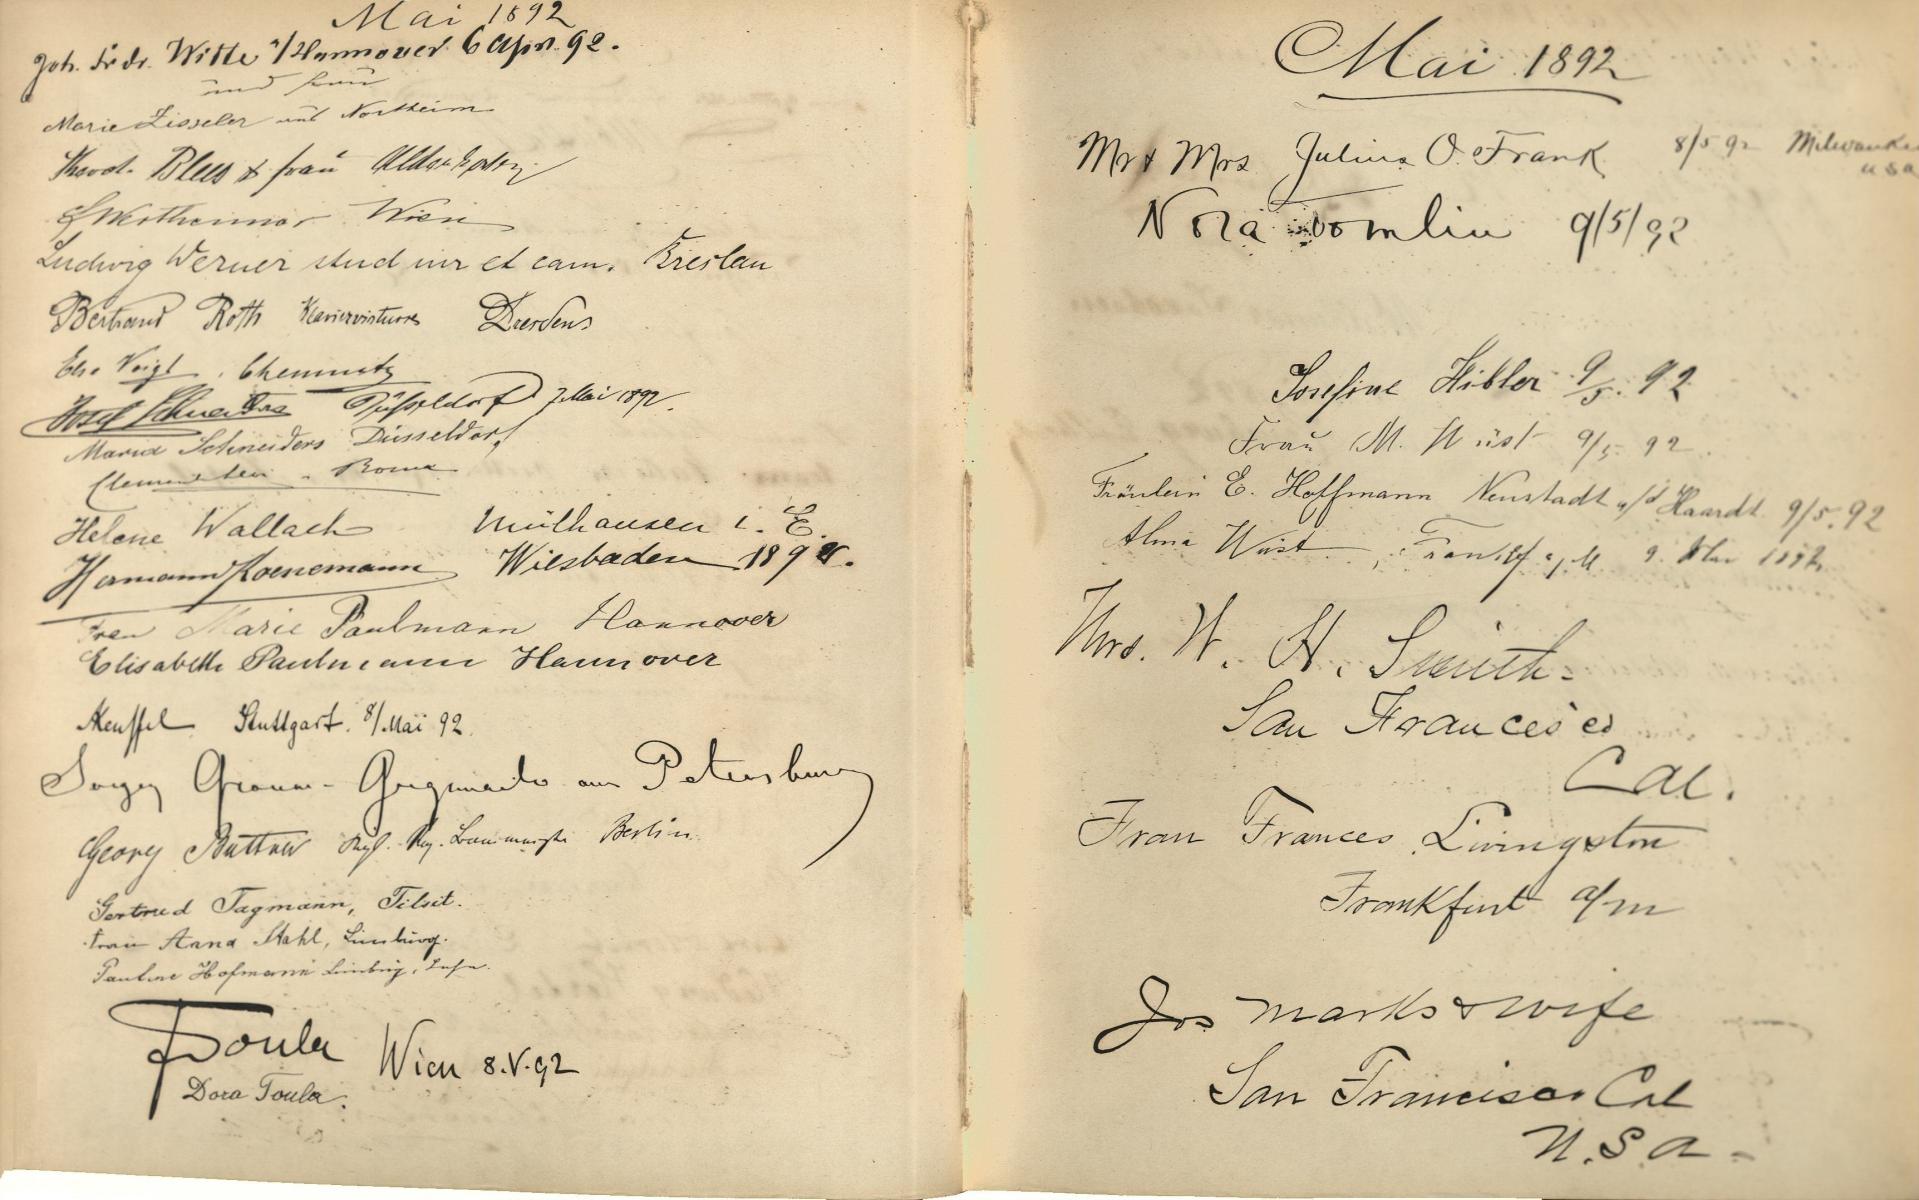 Mai 1892
Joh. Frdr. Witte a/Hannover 6 Apr. 92.
und frau
Marie Zisseler aus Northeim
Theod. Blees & frau
Wertheimer Wien
Ludwig Werner stud iur et cam. Breslau
Bertrand Roth Dresden
Else Voigt. Chemnitz
Josef Schneiders Düsseldorf 7 Mai 1892.
Maria Schneiders Düsseldorf
Roma
Helene Wallach Mülhausen i. E.
Hermann Koenemann Wiesbaden 1892.
Frau Marie Paulmann Hannover
Elisabeth Paulmann Hannover
Keuffel Stuttgart. 8/Mai 92.
aus Petersburg
Georg Büttner Kgl. Reg. Berlin.
Gertrud Tagmann, Tilsit.
Frau Anna Stahl, Limburg.
Pauline Hofmann Limburg, Lahn.
F Toula Wien 8.V.92
Dora Toula.
Mai 1892
Mr & Mrs Julius O. Frank 8/5 92 Milwaukee
USA
Nora Tomlin 9/5/92
Josefine Hibler 9/5. 92
Frau M. Wüst 9/5 92.
Fräulein E. Hoffmann Neustadt a/d Haardt 9/5. 92
Alma Wüst, Frankf a/M 9. Mai 1892.
Mrs. W. H. Smith
San Francisco
Cal.
Frau Frances Livingston
Frankfurt a/m
Jos Marks & wife
San Francisco Cal
U.S.A